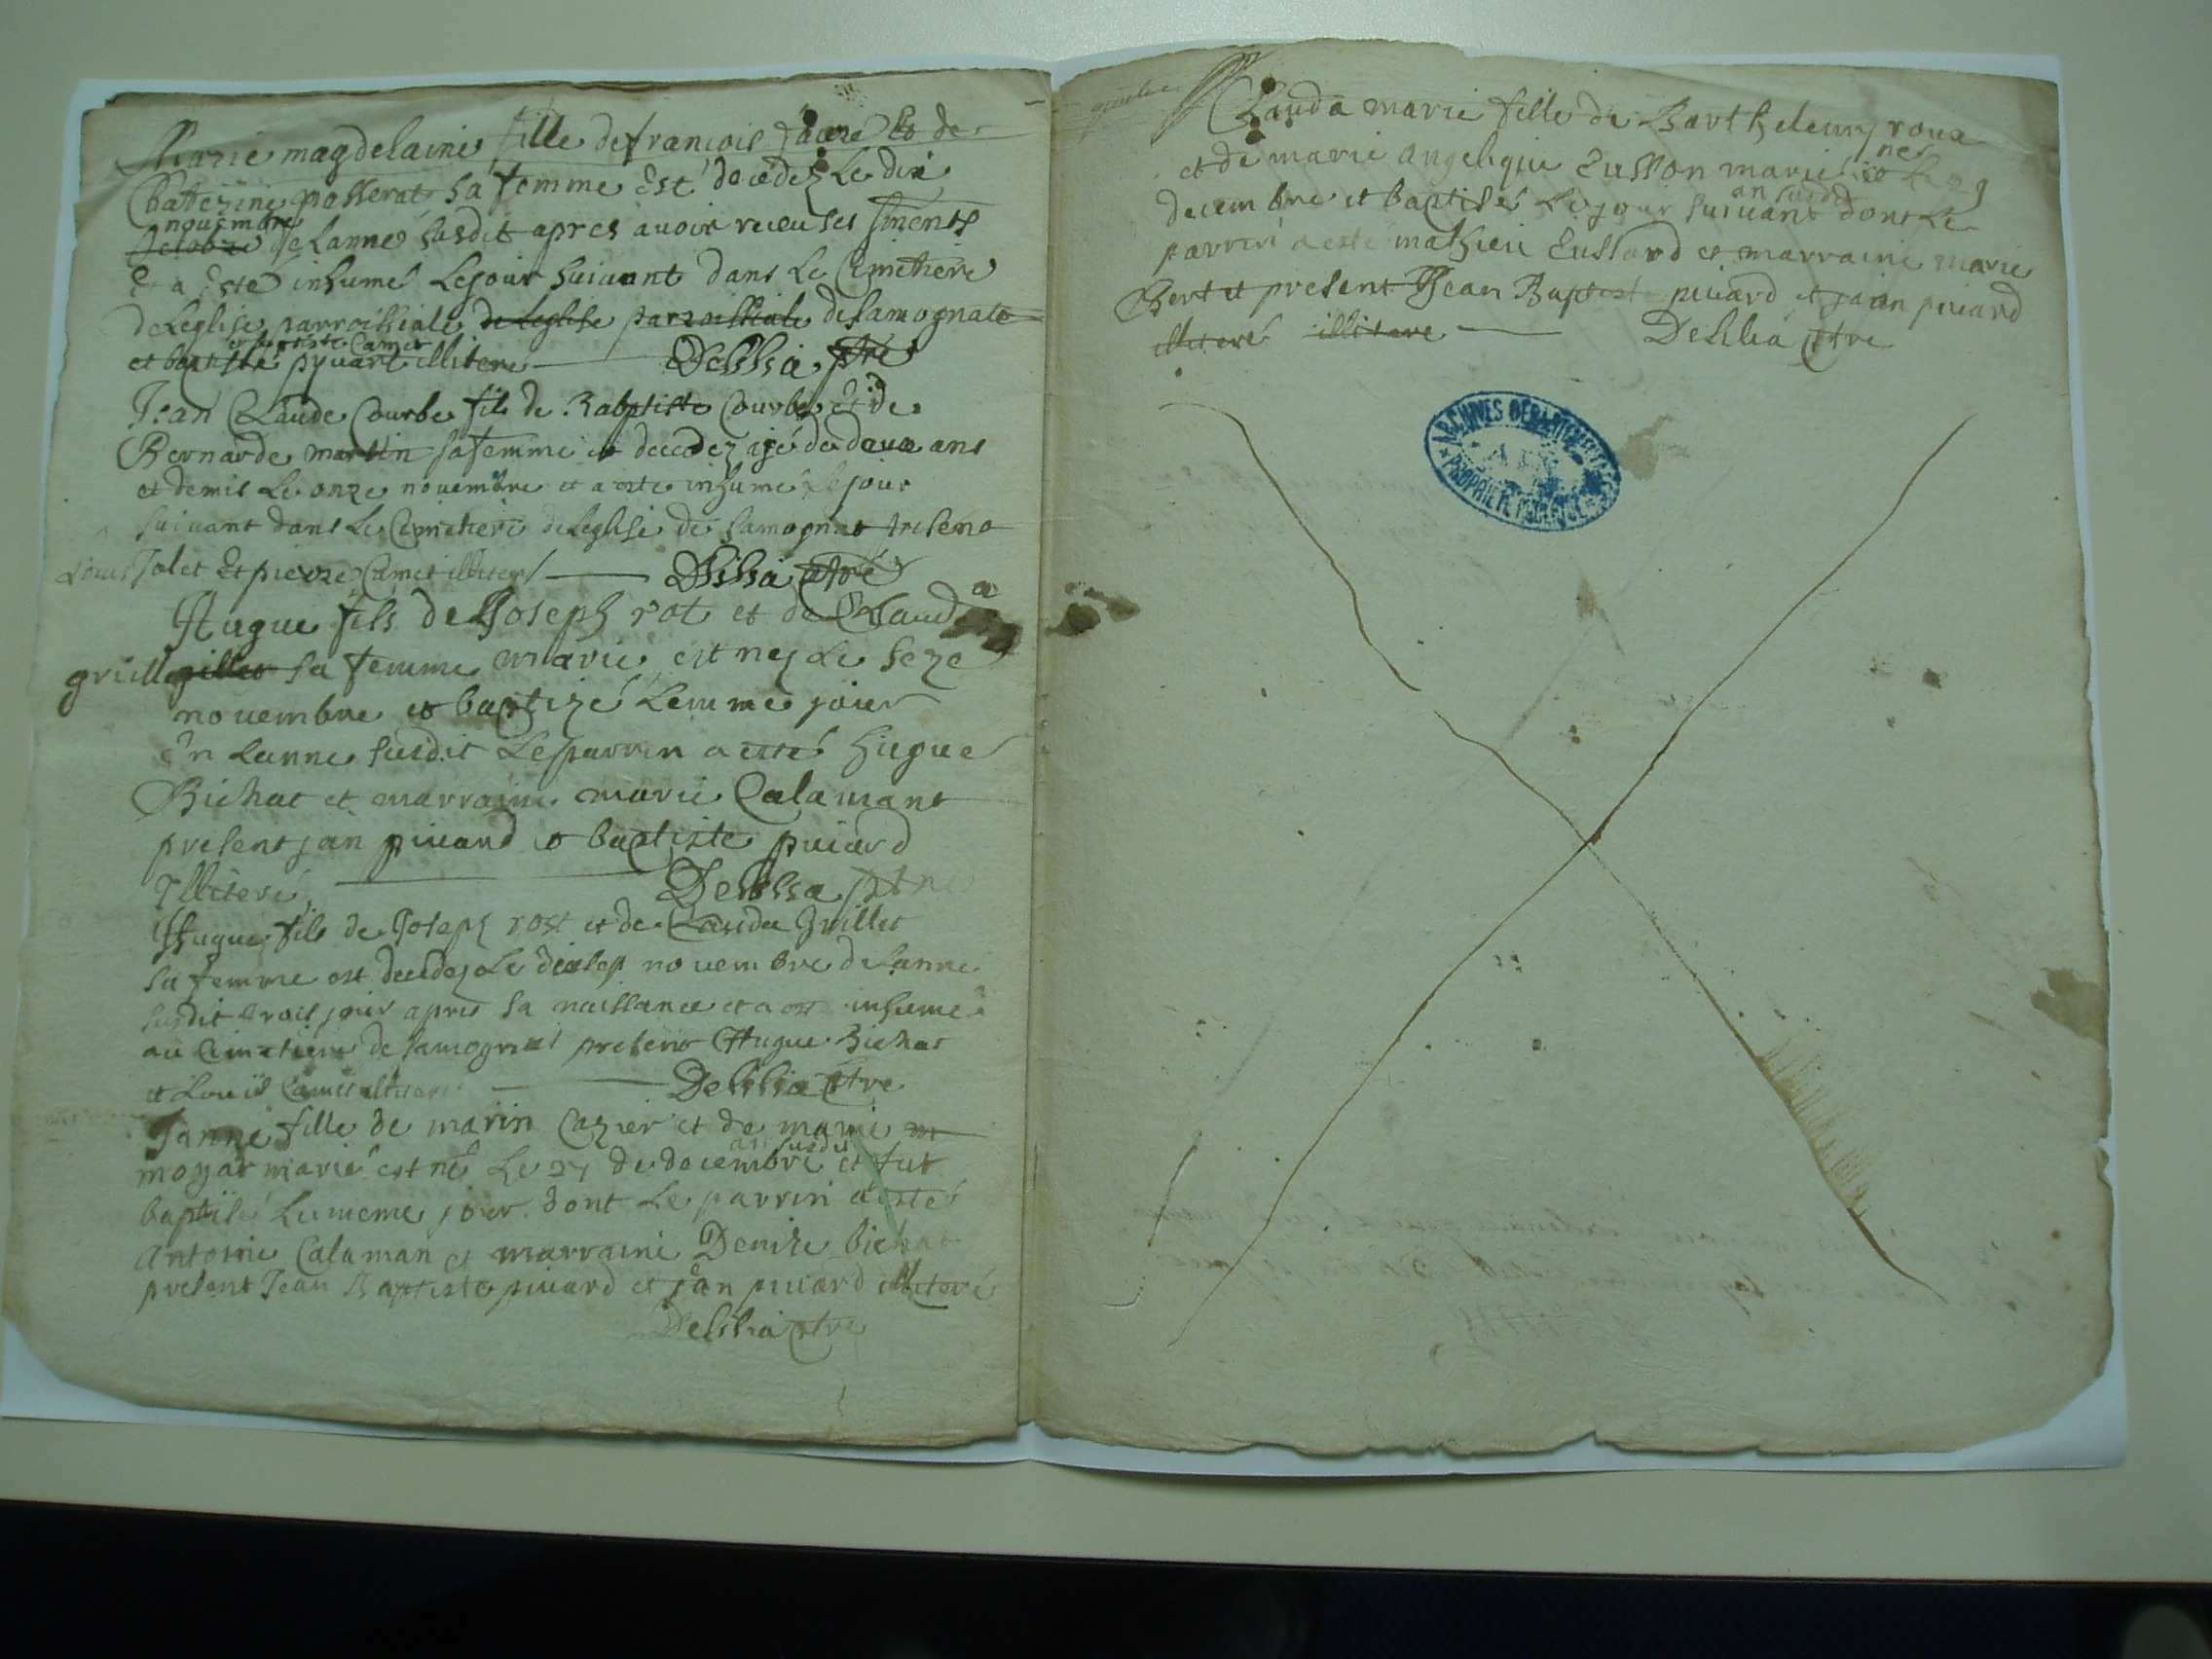 Marie magdelaine fille de francois et de
Catezine posserat sa femme est decedez Le dixi
nouembre
de Lanné susdit apres auoir receu ses sments
Et a Esté inhumé Lejour suiuant dans Le Cimetiere
deLeglise parroissiale deLeglise parroissiale desamognat
et baptiste Camet
et pyuart illiteré Delilia ptre
Jean Claude Courbe fils de Babptiste Courbe Et de
Bernarde martin sa femme et decedez agé de deux ans
et demis Le onze nouembre et a este inhumé Lejour
suiuant dans Le Cimetiere deLeglise de samognat presend
Louis Jolet Et pierre Camet illiter Delilia ptre
Hugue fils de Joseph rot et de Clauda
grillet sa femme marié est ney Le seze
nouembre et baptizé Lemme jour
En Lanne susdit Le parrin a esté hugue
Bichat et marraine marie Calamant
present jan piuard et baptiste piuard
Illiteré Delilia ptre
Hugue fils de Joseph rost et de Clauda Grillet
sa femme est decedez Le disept nouembre deLanne
susdit trois jour apres sa naissance et a este inhumé
au Cimetiere de samognat present Hugue Bichat
et Louis Camet Delilia ptre
Janne fille de marin Cazier et de marie m
an susdit
moyat marié est né Le 27 de decembre et fut
baptisé Lememe jour dont Le parrin a esté
Antoine Calaman et marraine Denize bichat
present Jean Baptiste piuard et jan piuard illiteré
Delilia ptre
Clauda marie fille de Barthelemy roux
et de marie angelique Eusson marié ney Le 29
an susdit
decembre et baptisé Le jour suiuant dont Le
parrin a esté mathieu Eussard et marraine marie
Bert et present Jean Baptiste piuard et jaan piuard
illiteré illitere Delilia ptre
ARCHIVES DEPARTEMENTALES
AIN
PROPRIETE PUBLIQUE